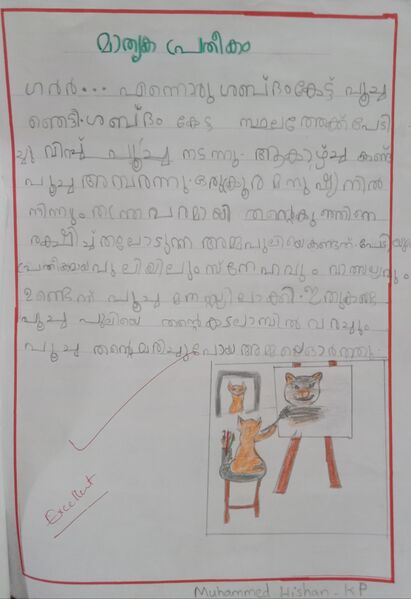 മാതൃക പ്രതീകം
ഗർർർ... എന്നൊരു ശബ്ദം കേട്ട് പൂച്ച
ഞെട്ടി. ശബ്ദം കേട്ട സ്ഥലത്തേക്ക് പേടി
ച്ചു വിറച്ച് പൂച്ച നടന്നു. ആ കാഴ്ച കണ്ട്
പൂച്ച അമ്പരന്നു. ഒരു ക്രൂര മനുഷ്യനിൽ
നിന്നും തന്റെ കുഞ്ഞിനെ
രക്ഷിച്ച് തലോടുന്ന അമ്മപുലിയെ കണ്ടത്. പേടിയുടെ
പ്രതീകമായ പുലിയിലും സ്നേഹവും വാത്സല്യവും
ഉണ്ടെന്ന് പൂച്ച മനസ്സിലാക്കി. ഇതുകണ്ട
പൂച്ച പുലിയെ തന്റെ കടലാസിൽ വരച്ചും
പൂച്ച തന്റെ മരിച്ചുപോയ അമ്മയെ ഓർത്തു.
Excellent
Muhammed Hishan - KP